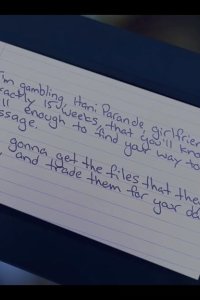 I'm gambling, Hani Parande, girlfrien
xactly 15 weeks, that you'll kno
ll enough to find your way to
ssage.
gonna get the files that the
, and trade them for your da